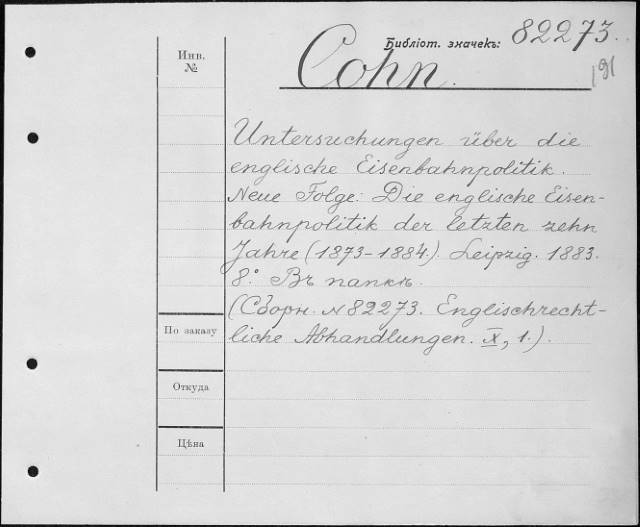 Библіот. значекъ: 82273.
Инв. №
Cohn.
191
Untersuchungen über die
englische Eisenbahnpolitik.
Neue Folge: Die englische Eisen-
bahnpolitik der letzten zehn
Jahre (1873-1884.). Leipzig. 1883.
8°. Въ папкѣ.
(Сборн. № 82273. Englischrecht-
liche Abhandlungen. X, 1.).
По заказу
Откуда
Цѣна